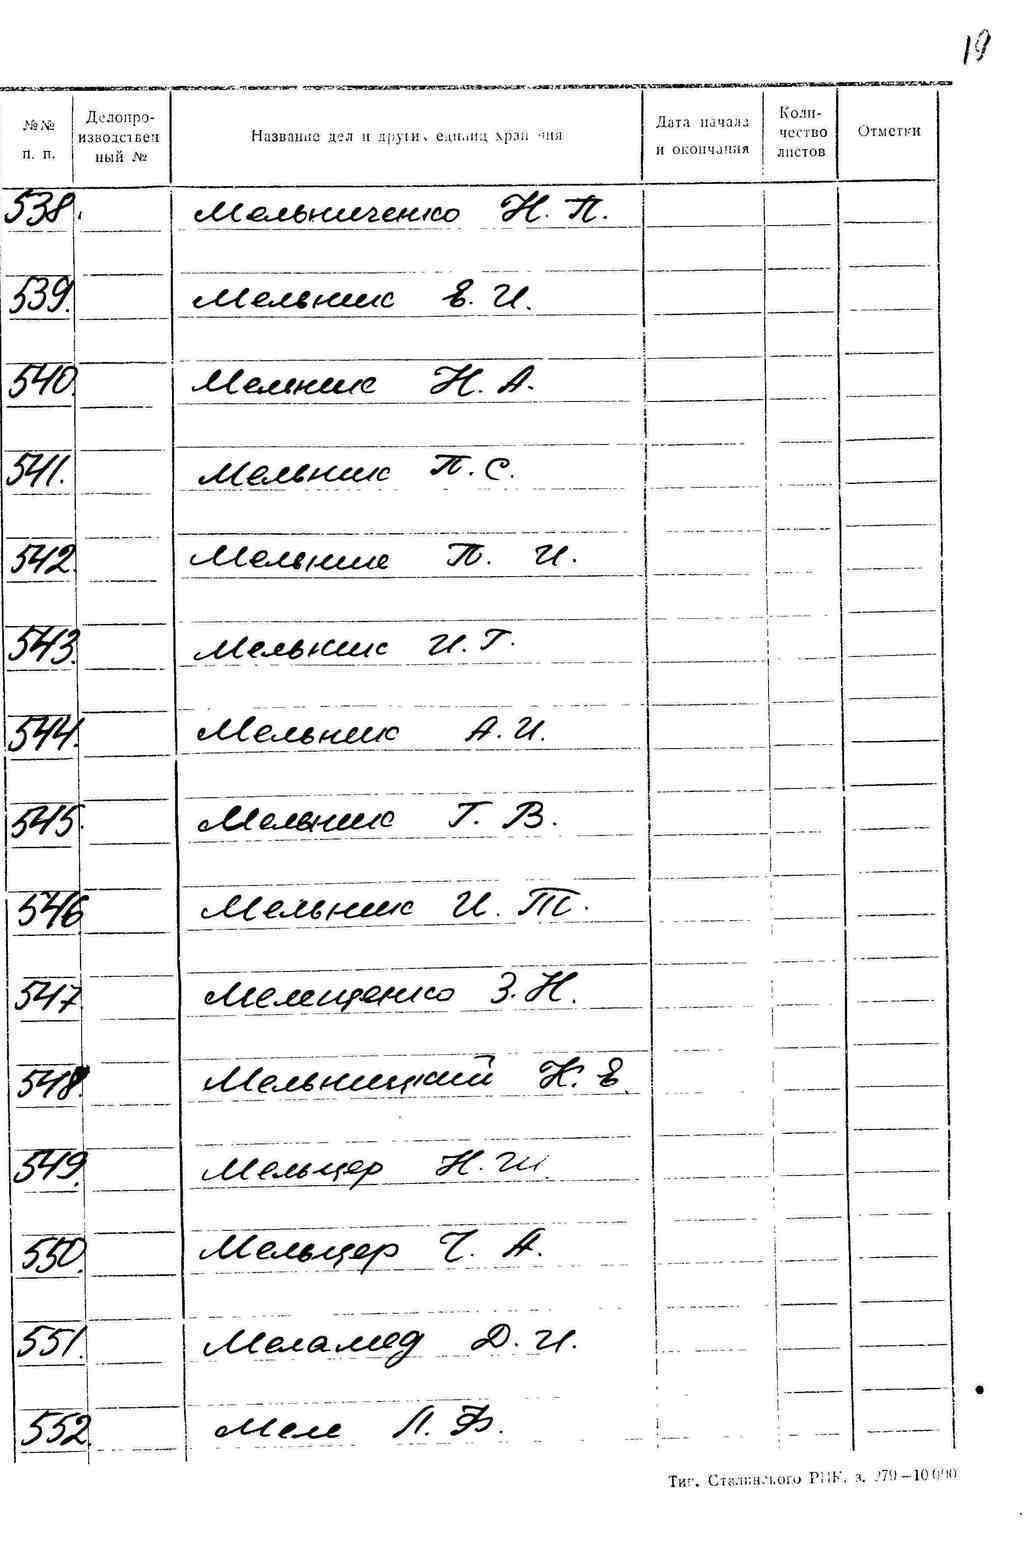 19
№№ п. п. Делопроизводствен ный № Название дел и других единиц хранения Дата начала и окончания Количество листов Отметки
538. Мельниченко Н. П.
539. Мельник Е. И.
540. Мельник Н. А.
541. Мельник П. С.
542. Мельник П. И.
543. Мельник И. Г.
544. Мельник А. И.
545. Мельник Г. В.
546 Мельник И. Т.
547. Мелещенко З. Н.
548. Мельницкий Н. Е.
549. Мельцер Н. Ш.
550. Мельцер Ч. А.
551. Меламед Д. И.
552. Меле Л. Ф.
Тип. Сталинского РИК. з. 279—10000